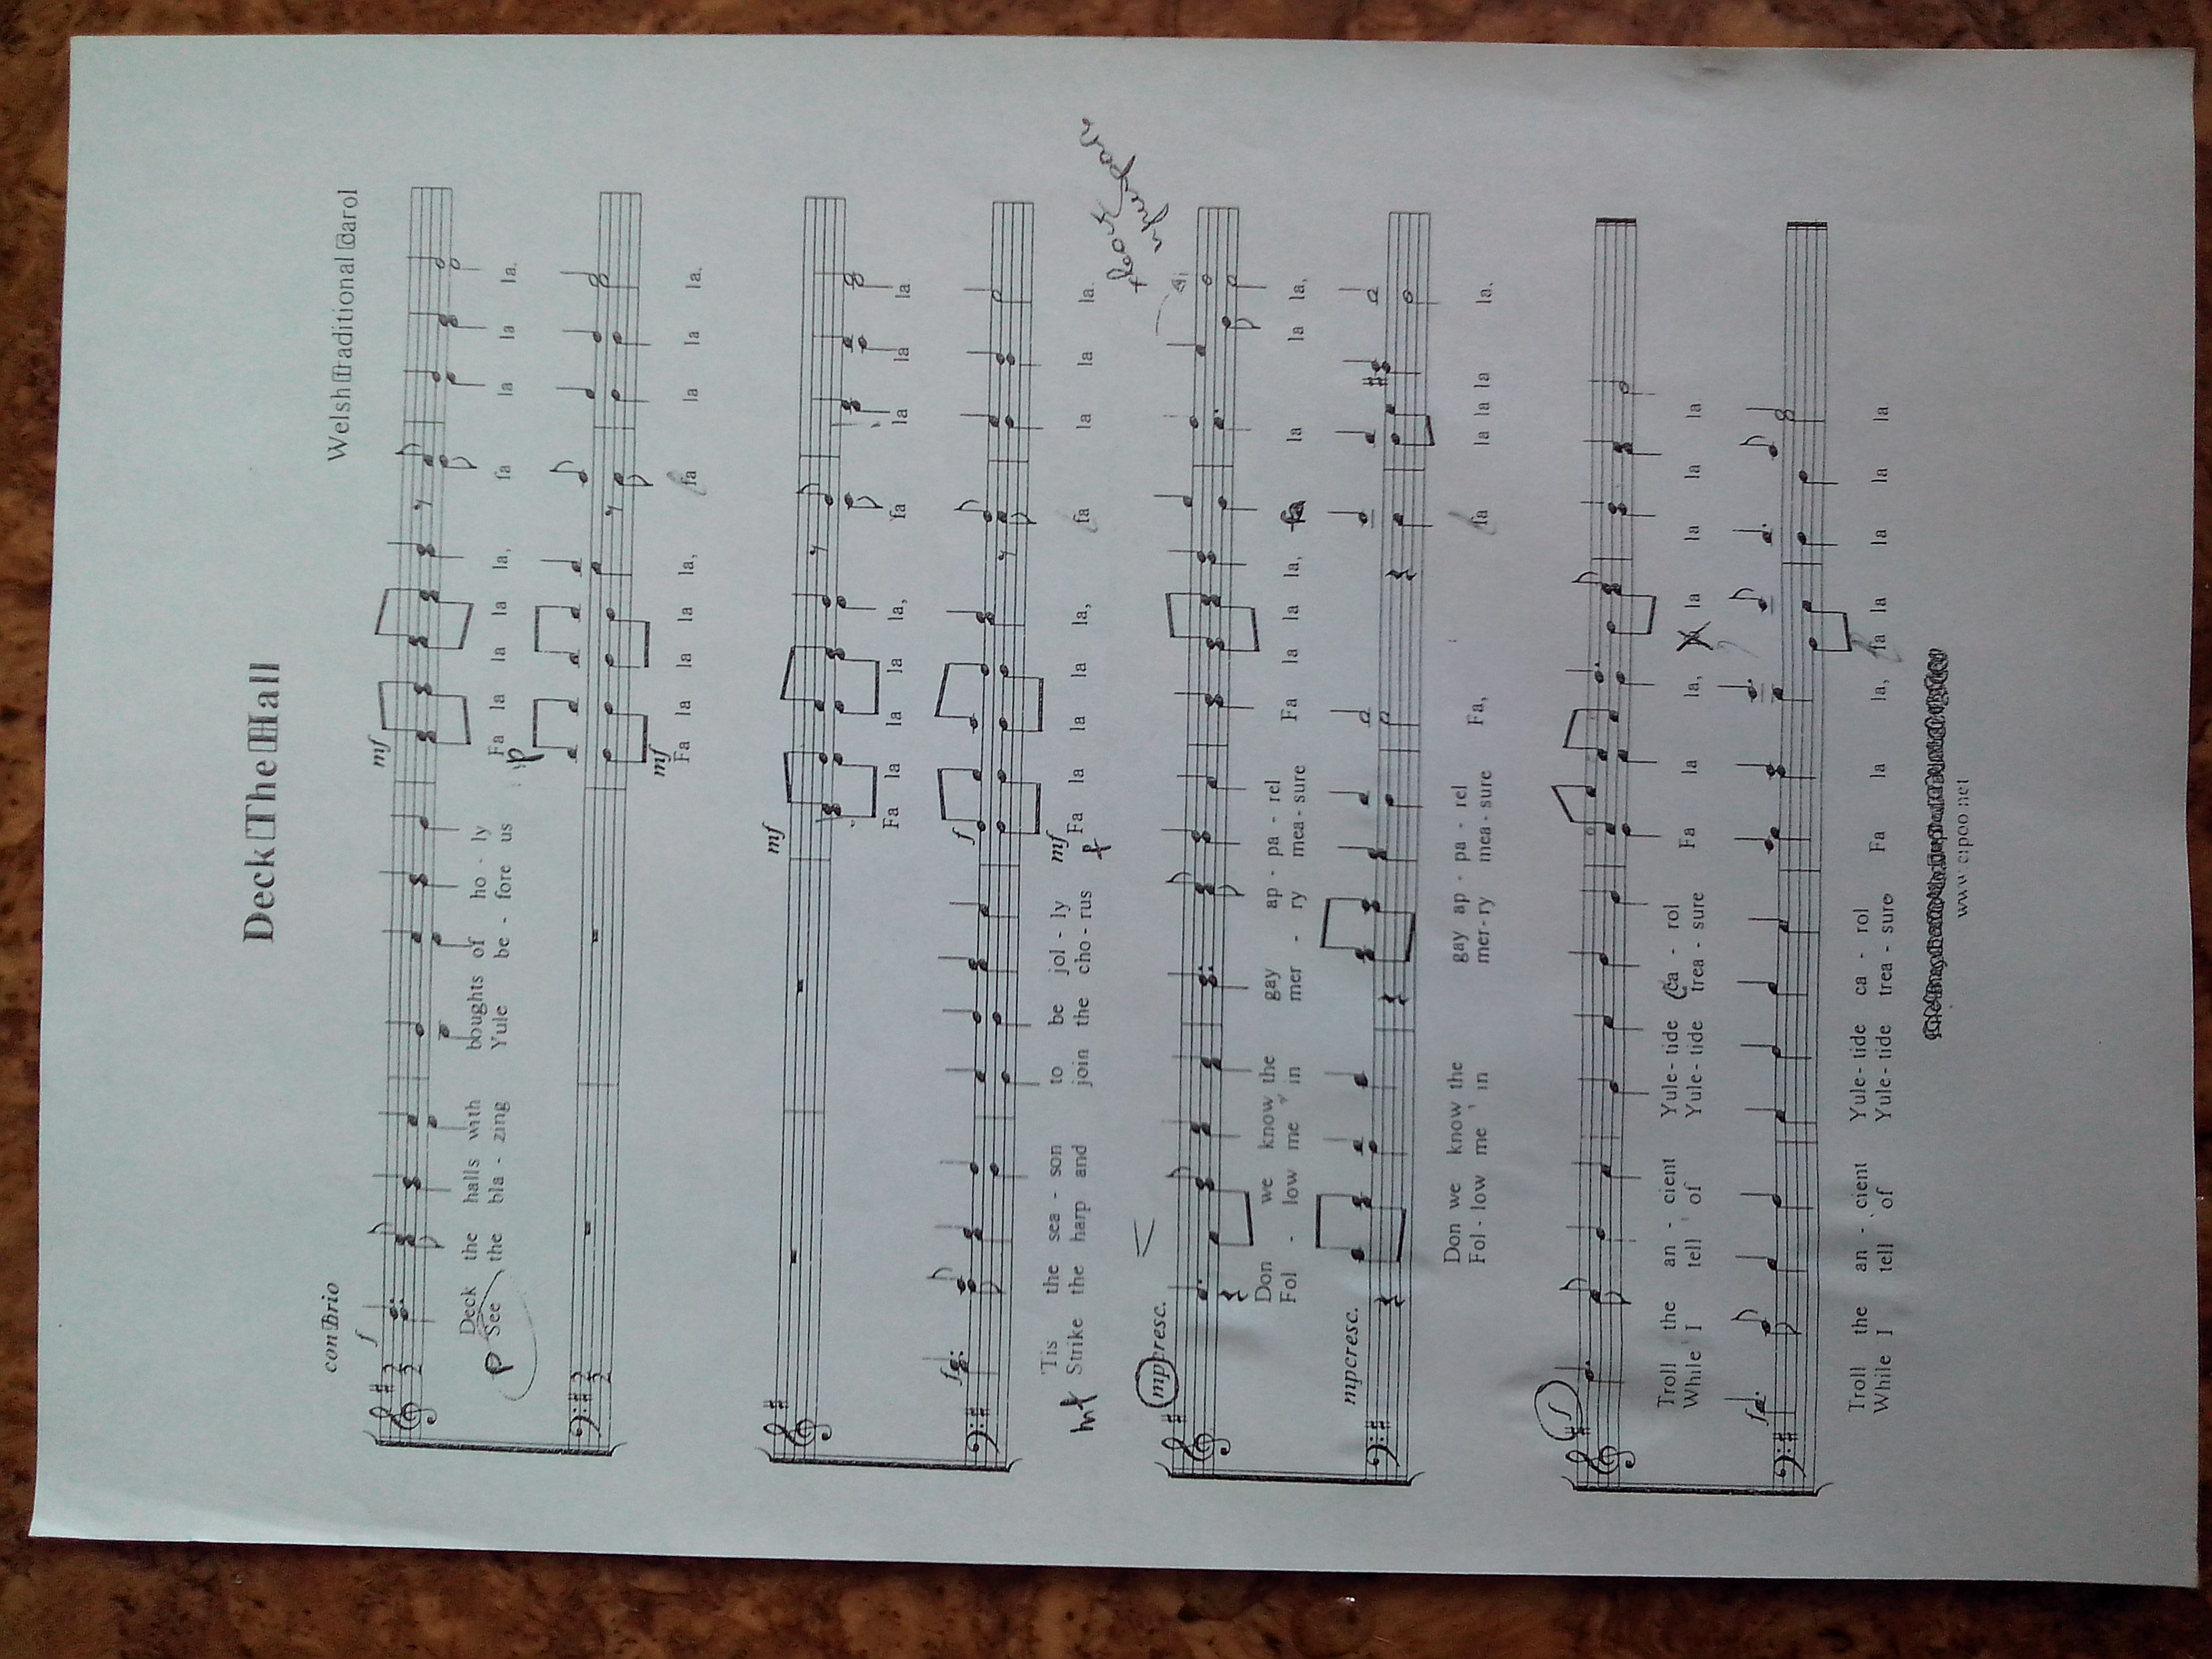 Deck The Hall
Welsh Traditional Carol
con Brio
f
mf
Deck the halls with boughts of ho - ly Fa la la la la, fa la la la.
p See the bla - zing Yule be - fore us p
mf
Fa la la la la, fa la la la.
mf
Fa la la la la, fa la la la.
f
f
'Tis the sea - son to be jol - ly mf Fa la la la la, fa la la la.
Strike the harp and join the cho - rus f
mf
mpcresc.
Don we know the gay ap - pa - rel Fa la la la, fa la la la,
Fol - low me in mer - ry mea - sure
mpcresc.
Don we know the gay ap - pa - rel Fa, fa la la la la.
Fol - low me in mer - ry mea - sure
f
Troll the an - cient Yule - tide ca - rol Fa la la, la la la la
While I tell of Yule - tide trea - sure
f
Troll the an - cient Yule - tide ca - rol Fa la la, fa la la la la
While I tell of Yule - tide trea - sure
www.cipoo.net